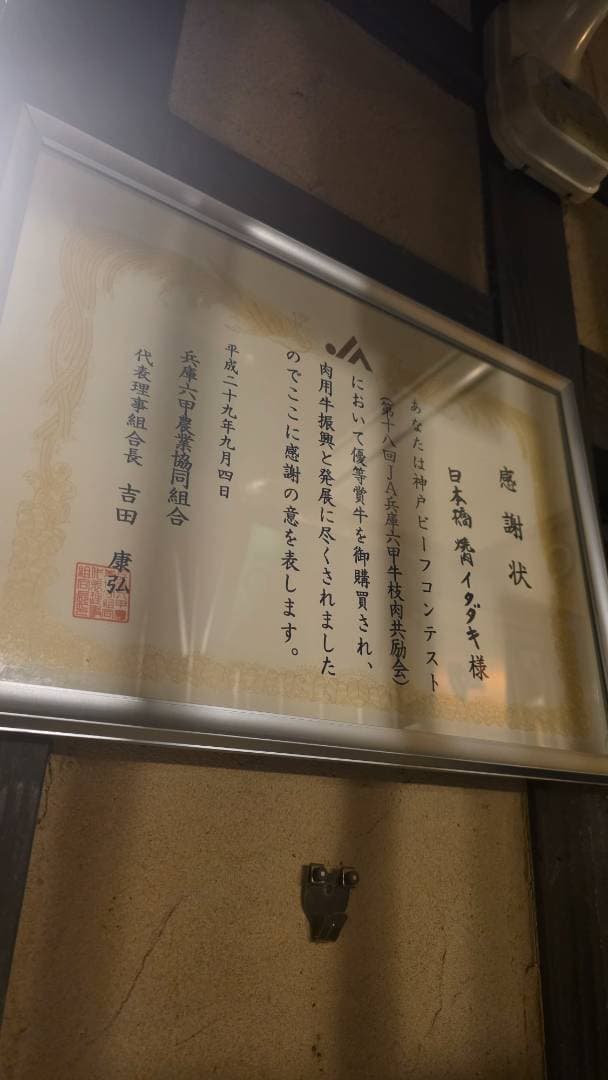 感謝状
日本橋 焼肉イタダキ様
あなたは神戸ビーフコンテスト
(第十八回JA兵庫六甲牛枝肉共励会)
において優等賞牛を御購買され、
肉用牛振興と発展に尽くされました
のでここに感謝の意を表します。
平成二十九年九月四日
兵庫六甲農業協同組合
代表理事組合長 吉田 康弘